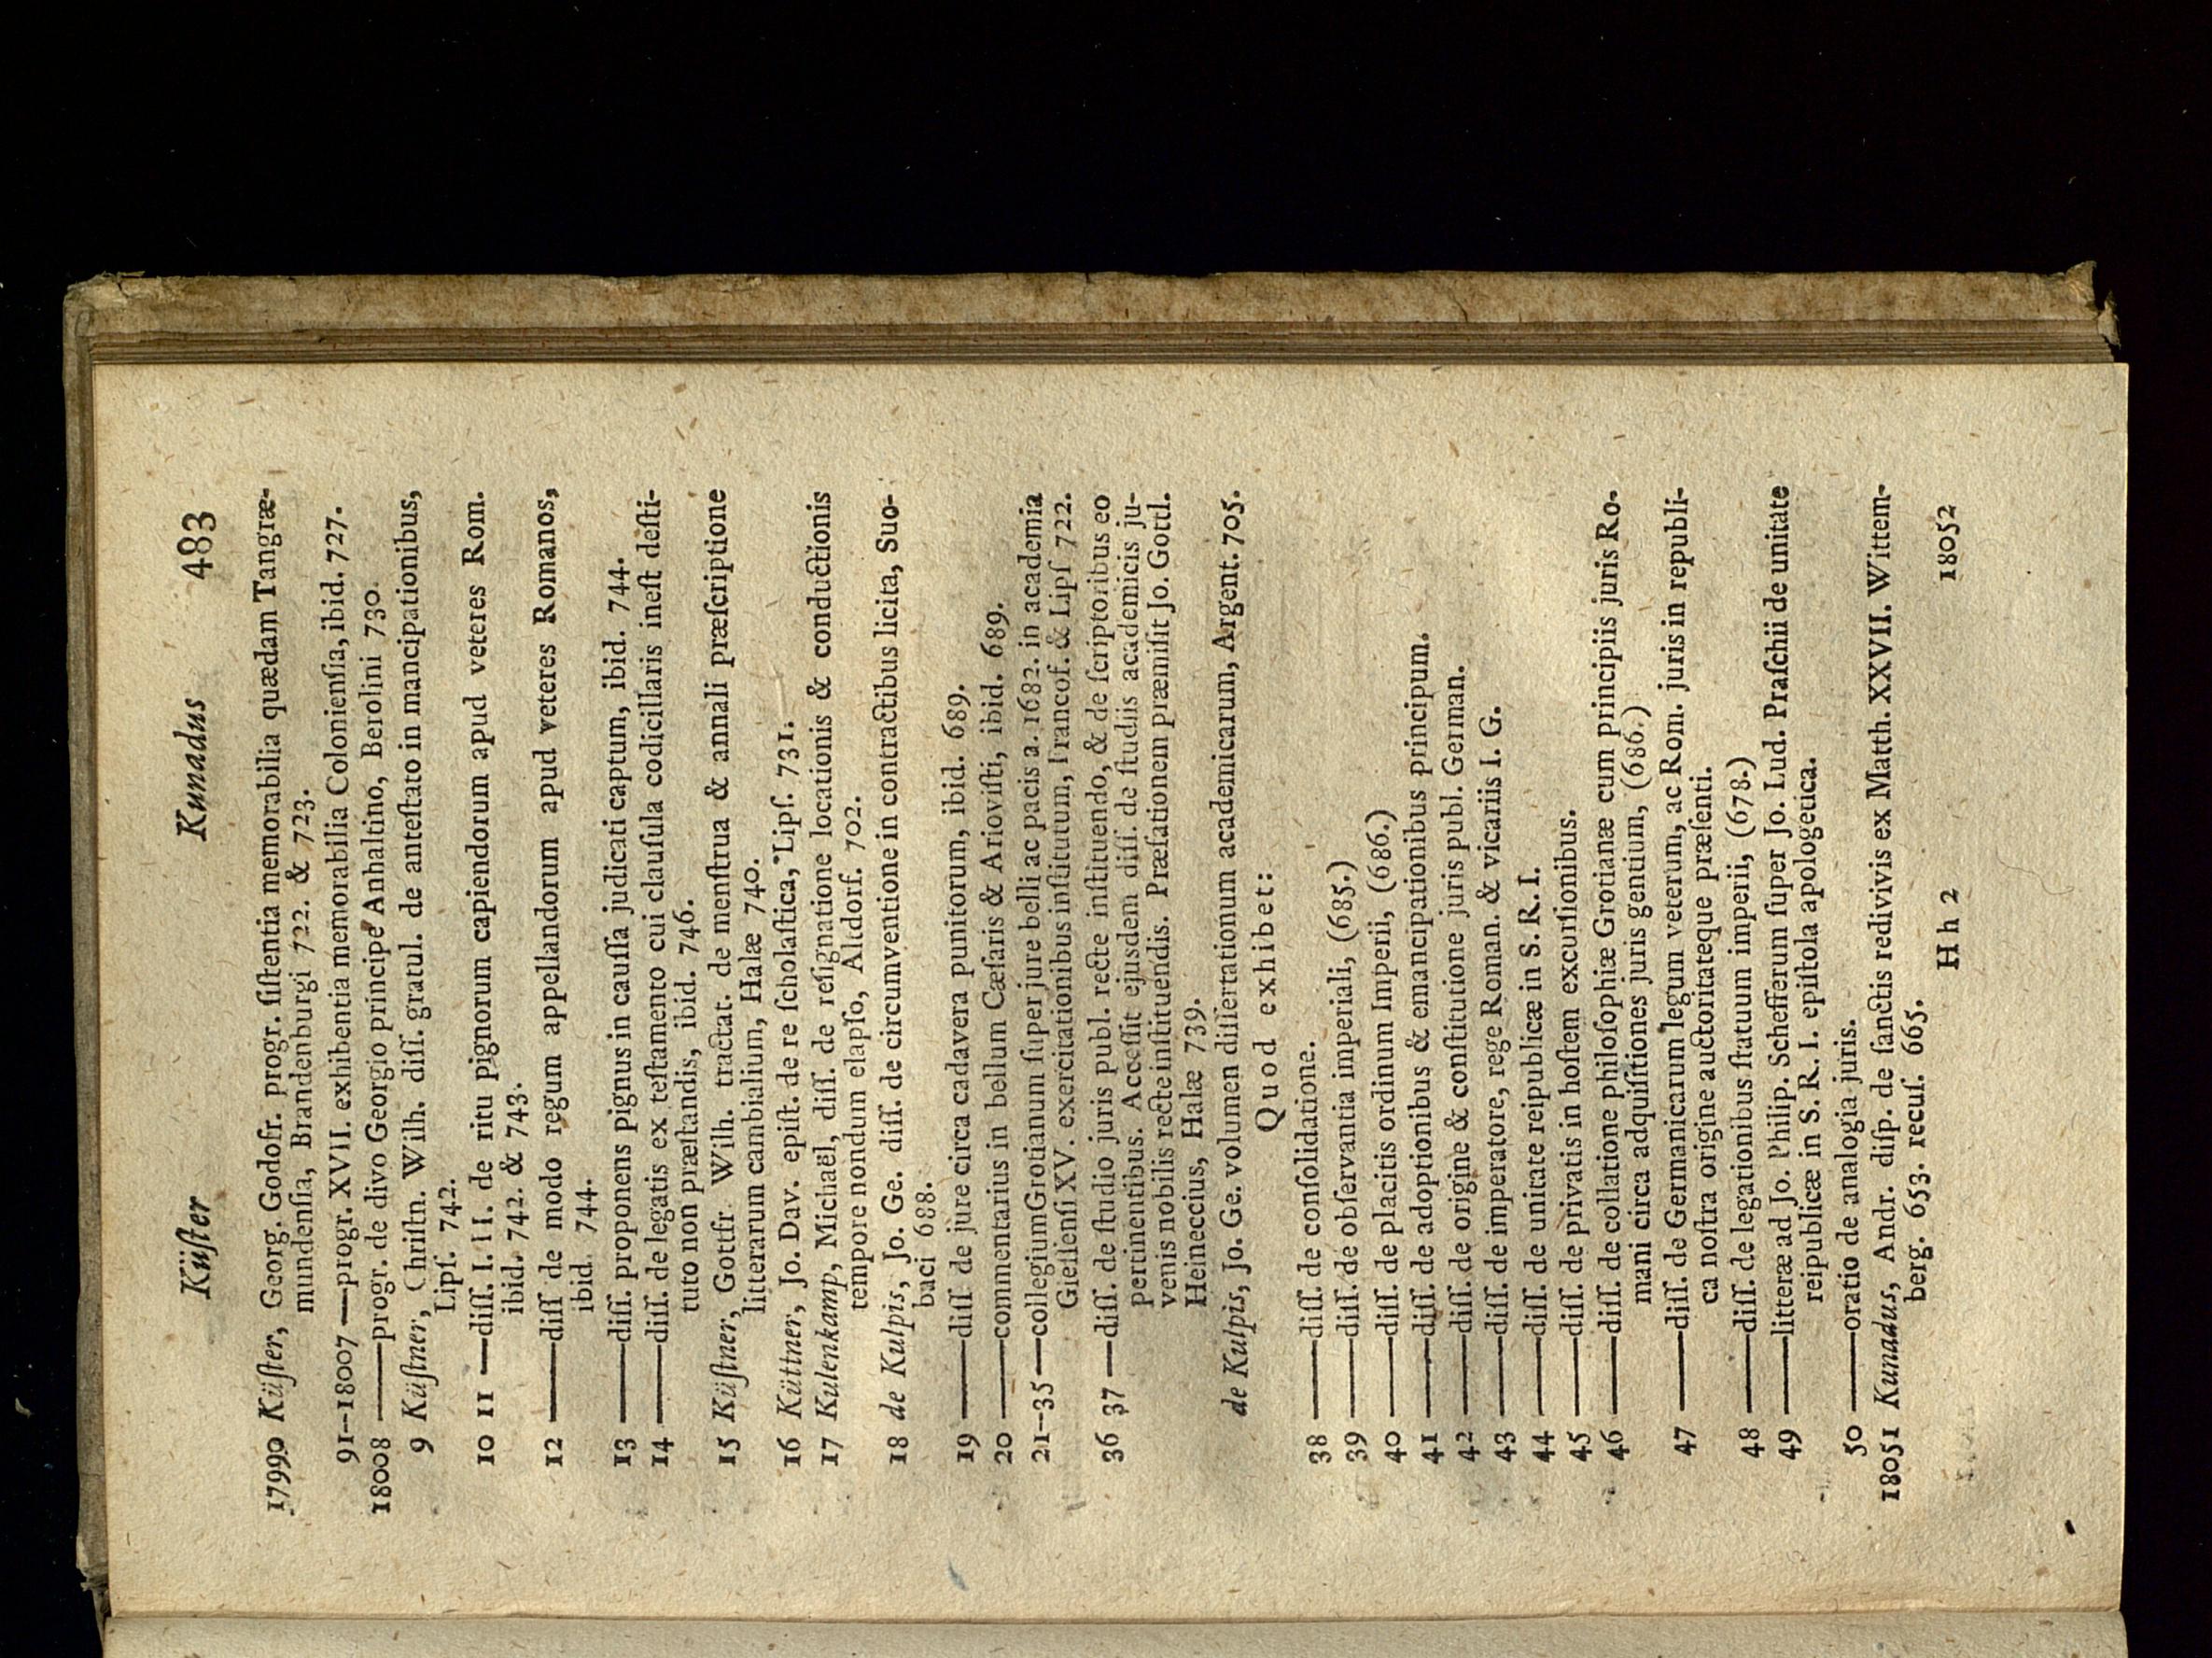 Küſter Kunadus 483
17990 Küſter, Georg. Godofr. progr. ſiſtentia memorabilia quædam Tangræ-
mundenſia, Brandenburgi 722. & 723.
91-18007 — progr. XVII. exhibentia memorabilia Colonienſia, ibid. 727.
18008 — progr. de divo Georgio principe Anhaltino, Berolini 730.
9 Küſtner, Chriſtn. Wilh. diſſ. gratul. de anteſtato in mancipationibus,
Lipſ. 742.
10 11 — diſſ. I. II. de ritu pignorum capiendorum apud veteres Rom.
ibid. 742. & 743.
12 — diſſ de modo regum appellandorum apud veteres Romanos,
ibid. 744.
13 — diſſ. proponens pignus in cauſſa judicati captum, ibid. 744.
14 — diſſ. de legatis ex teſtamento cui clauſula codicillaris ineſt deſti-
tuto non præſtandis, ibid. 746.
15 Küſtner, Gottfr. Wilh. tractat. de menſtrua & annali præſcriptione
litterarum cambialium, Halæ 740.
16 Küttner, Jo. Dav. epiſt. de re ſcholaſtica, Lipſ. 731.
17 Kulenkamp, Michaël, diſſ. de reſignatione locationis & conductionis
tempore nondum elapſo, Altdorf. 702.
18 de Kulpis, Jo. Ge. diſſ. de circumventione in contractibus licita, Suo-
baci 688.
19 — diſſ de jure circa cadavera punitorum, ibid. 689.
20 — commentarius in bellum Cæſaris & Arioviſti, ibid. 689.
21-35 — collegium Grotianum ſuper jure belli ac pacis a. 1682. in academia
Gieſſenſi XV. exercitationibus inſtitutum, Francof. & Lipſ 722.
36 37 — diſſ. de ſtudio juris publ. recte inſtituendo, & de ſcriptoribus eo
pertinentibus. Acceſſit ejusdem diſſ. de ſtudiis academicis ju-
venis nobilis recte inſtituendis. Præfationem præmiſit Jo. Gottl.
Heineccius, Halæ 739.
de Kulpis, Jo. Ge. volumen diſſertationum academicarum, Argent. 705.
Quod exhibet:
38 — diſſ. de conſolidatione.
39 — diſſ. de obſervantia imperiali, (685.)
40 — diſſ. de placitis ordinum Imperii, (686.)
41 — diſſ. de adoptionibus & emancipationibus principum.
42 — diſſ. de origine & conſtitutione juris publ. German.
43 — diſſ. de imperatore, rege Roman. & vicariis I. G.
44 — diſſ. de unitate reipublicæ in S. R. I.
45 — diſſ. de privatis in hoſtem excurſionibus.
46 — diſſ. de collatione philoſophiæ Grotianæ cum principiis juris Ro-
mani circa adquiſitiones juris gentium, (686.)
47 — diſſ. de Germanicarum legum veterum, ac Rom. juris in republi-
ca noſtra origine auctoritateque præſenti.
48 — diſſ. de legationibus ſtatuum imperii, (678.)
49 — litteræ ad Jo. Philip. Schefferum ſuper Jo. Lud. Praſchii de unitate
reipublicæ in S. R. I. epiſtola apologetica.
50 — oratio de analogia juris.
18051 Kunadus, Andr. diſp. de ſanctis redivivis ex Matth. XXVII. Wittem-
berg. 653. recuſ. 665.
H h 2 18052